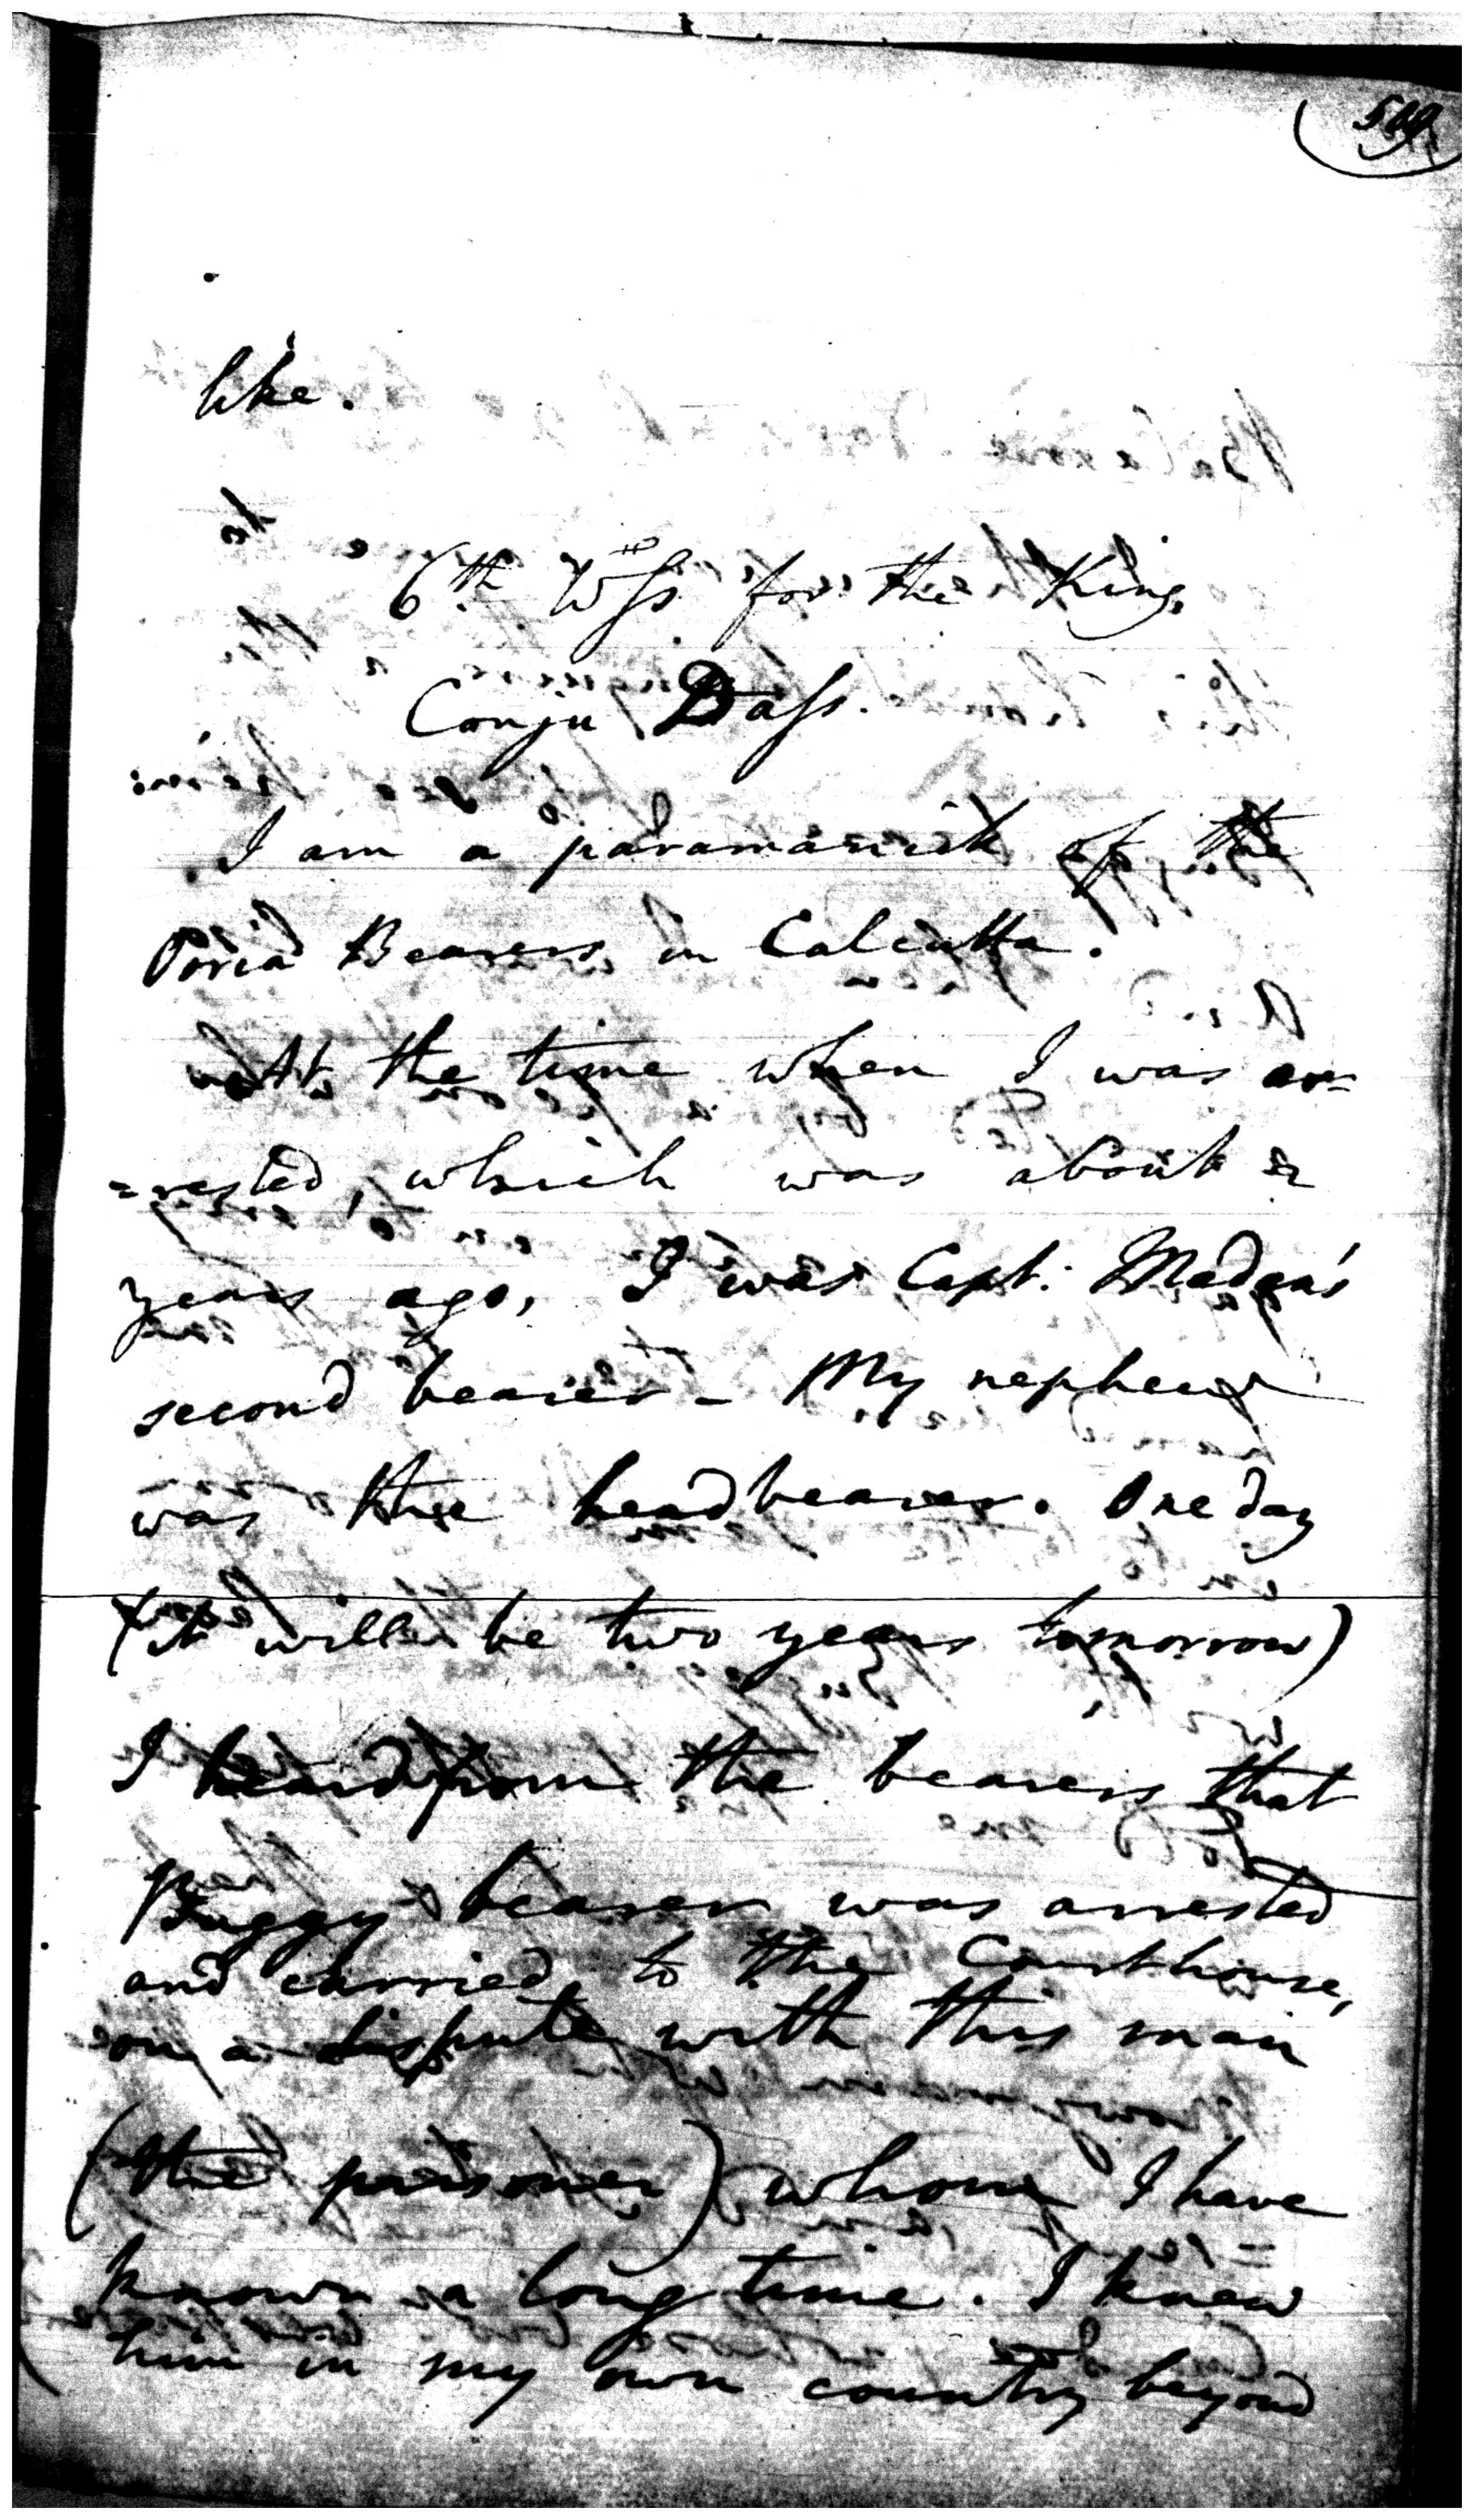 like.
6th Wss for the King,
Conju Dass.
I am a paramanick of the
Ooria Bearers in Calcutta.
At the time when I was ar=
=rested, which was about 2
years ago, I was Capt: Madan's
second bearer - My nephew
was the head bearer. One day
(it will be two years tomorrow)
I heard from the bearers that
Buggy bearer was arrested
and carried to the Courthouse,
on a dispute with this man
(the prisoner) whom I have
known a long time. I knew
him in my own country beyond